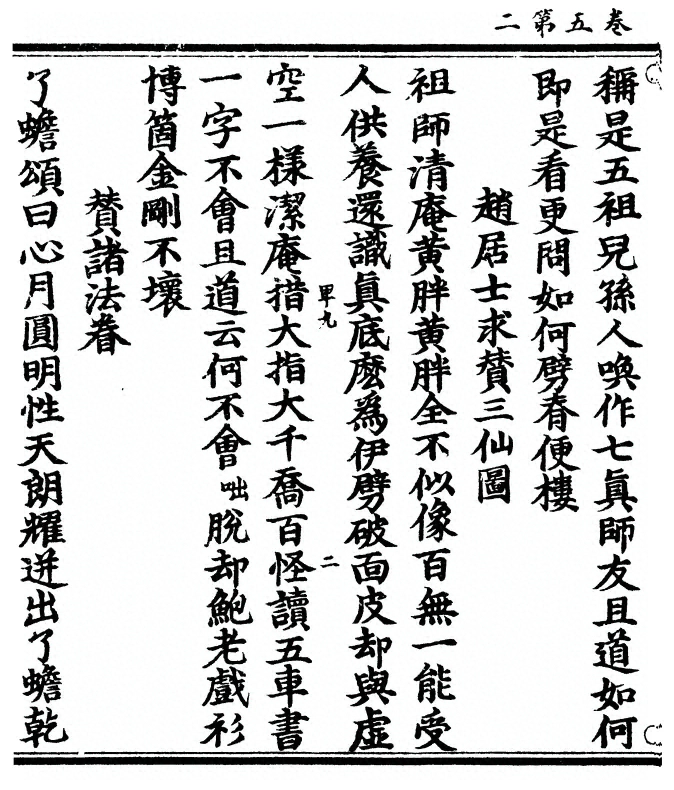 二第五卷
稱是五祖兒孫人喚作七眞師友且道如何
即是看更問如何劈脊便摟
趙居士求贊三仙圖
祖師清庵黃胖黃胖全不似像百無一能受
人供養還識眞底麽爲伊劈破面皮却與虛
空一樣潔庵揝大指大千喬百怪讀五車書
甲九
二
一字不會且道云何不會咄脫却鮑老戲衫
博箇金剛不壞
贊諸法眷
了蟾頌曰心月圓明性天朗耀迸出了蟾乾